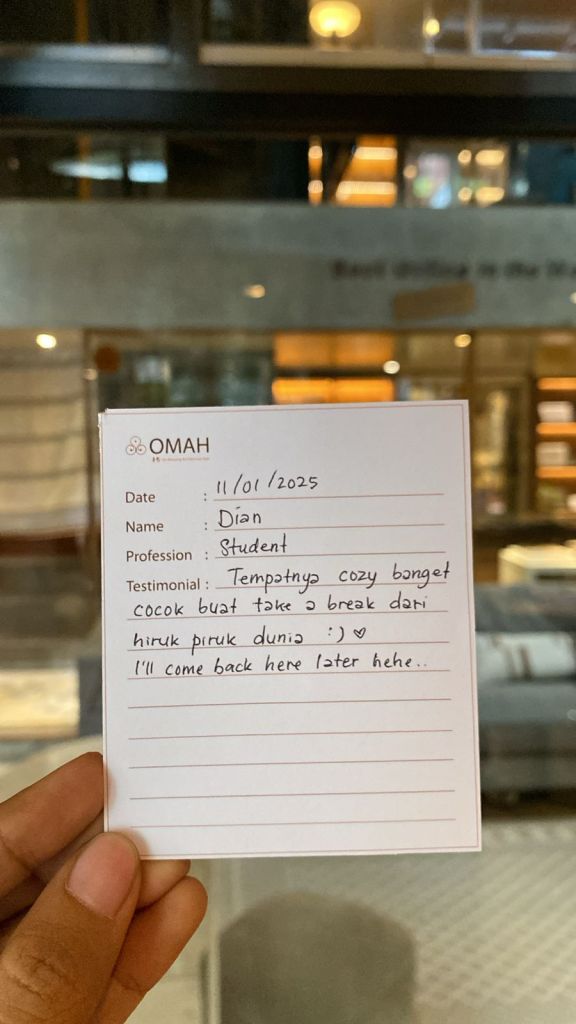 OMAH
Date : 11/01/2025
Name : Dian
Profession : Student
Testimonial : Tempatnya cozy banget
cocok buat take a break dari
hiruk piruk dunia :) ♡
I'll come back here later hehe..